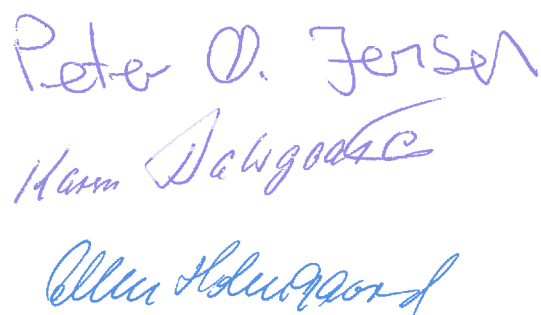 Peter O. Jensen
Karen Dalsgaard
Ellen Holmgaard